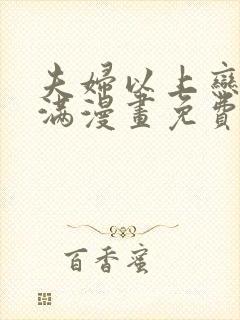 夫婦以上戀
滿漫畫免費
百香蜜